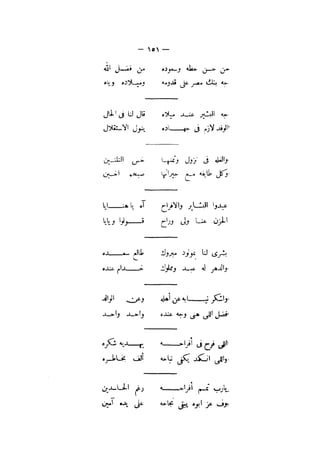 — ١٥١ —
من حسن حظه وسعوده من فضل الله
جه بنك مصر على قدومه وميلاده وياه
جه البشير عند ميلاده قال لنا في الحال
الوفد لازم في ينول الاستقلال
والله في نزول وكل طايفه مع جيرانها
عبدوا البشاير والافراح آه يا هنايا
الحزن عنا ولى وراح قولوا ويايا
بشرى لنا مبروك طالع سعده
والدهر له عبد ومملوك خدام عنده
واشكر عن أهله وعن الوالد
فضل اللي هي وجه عنده واحد واحد
اللي فرح في أفراحه يهديه شكره
واللي انكد يكفي نباحه ألف مخاطره
يارب تمم أفراحه رغم الحاسدين
عز ابوه يبقى نجاحه على يده آمين